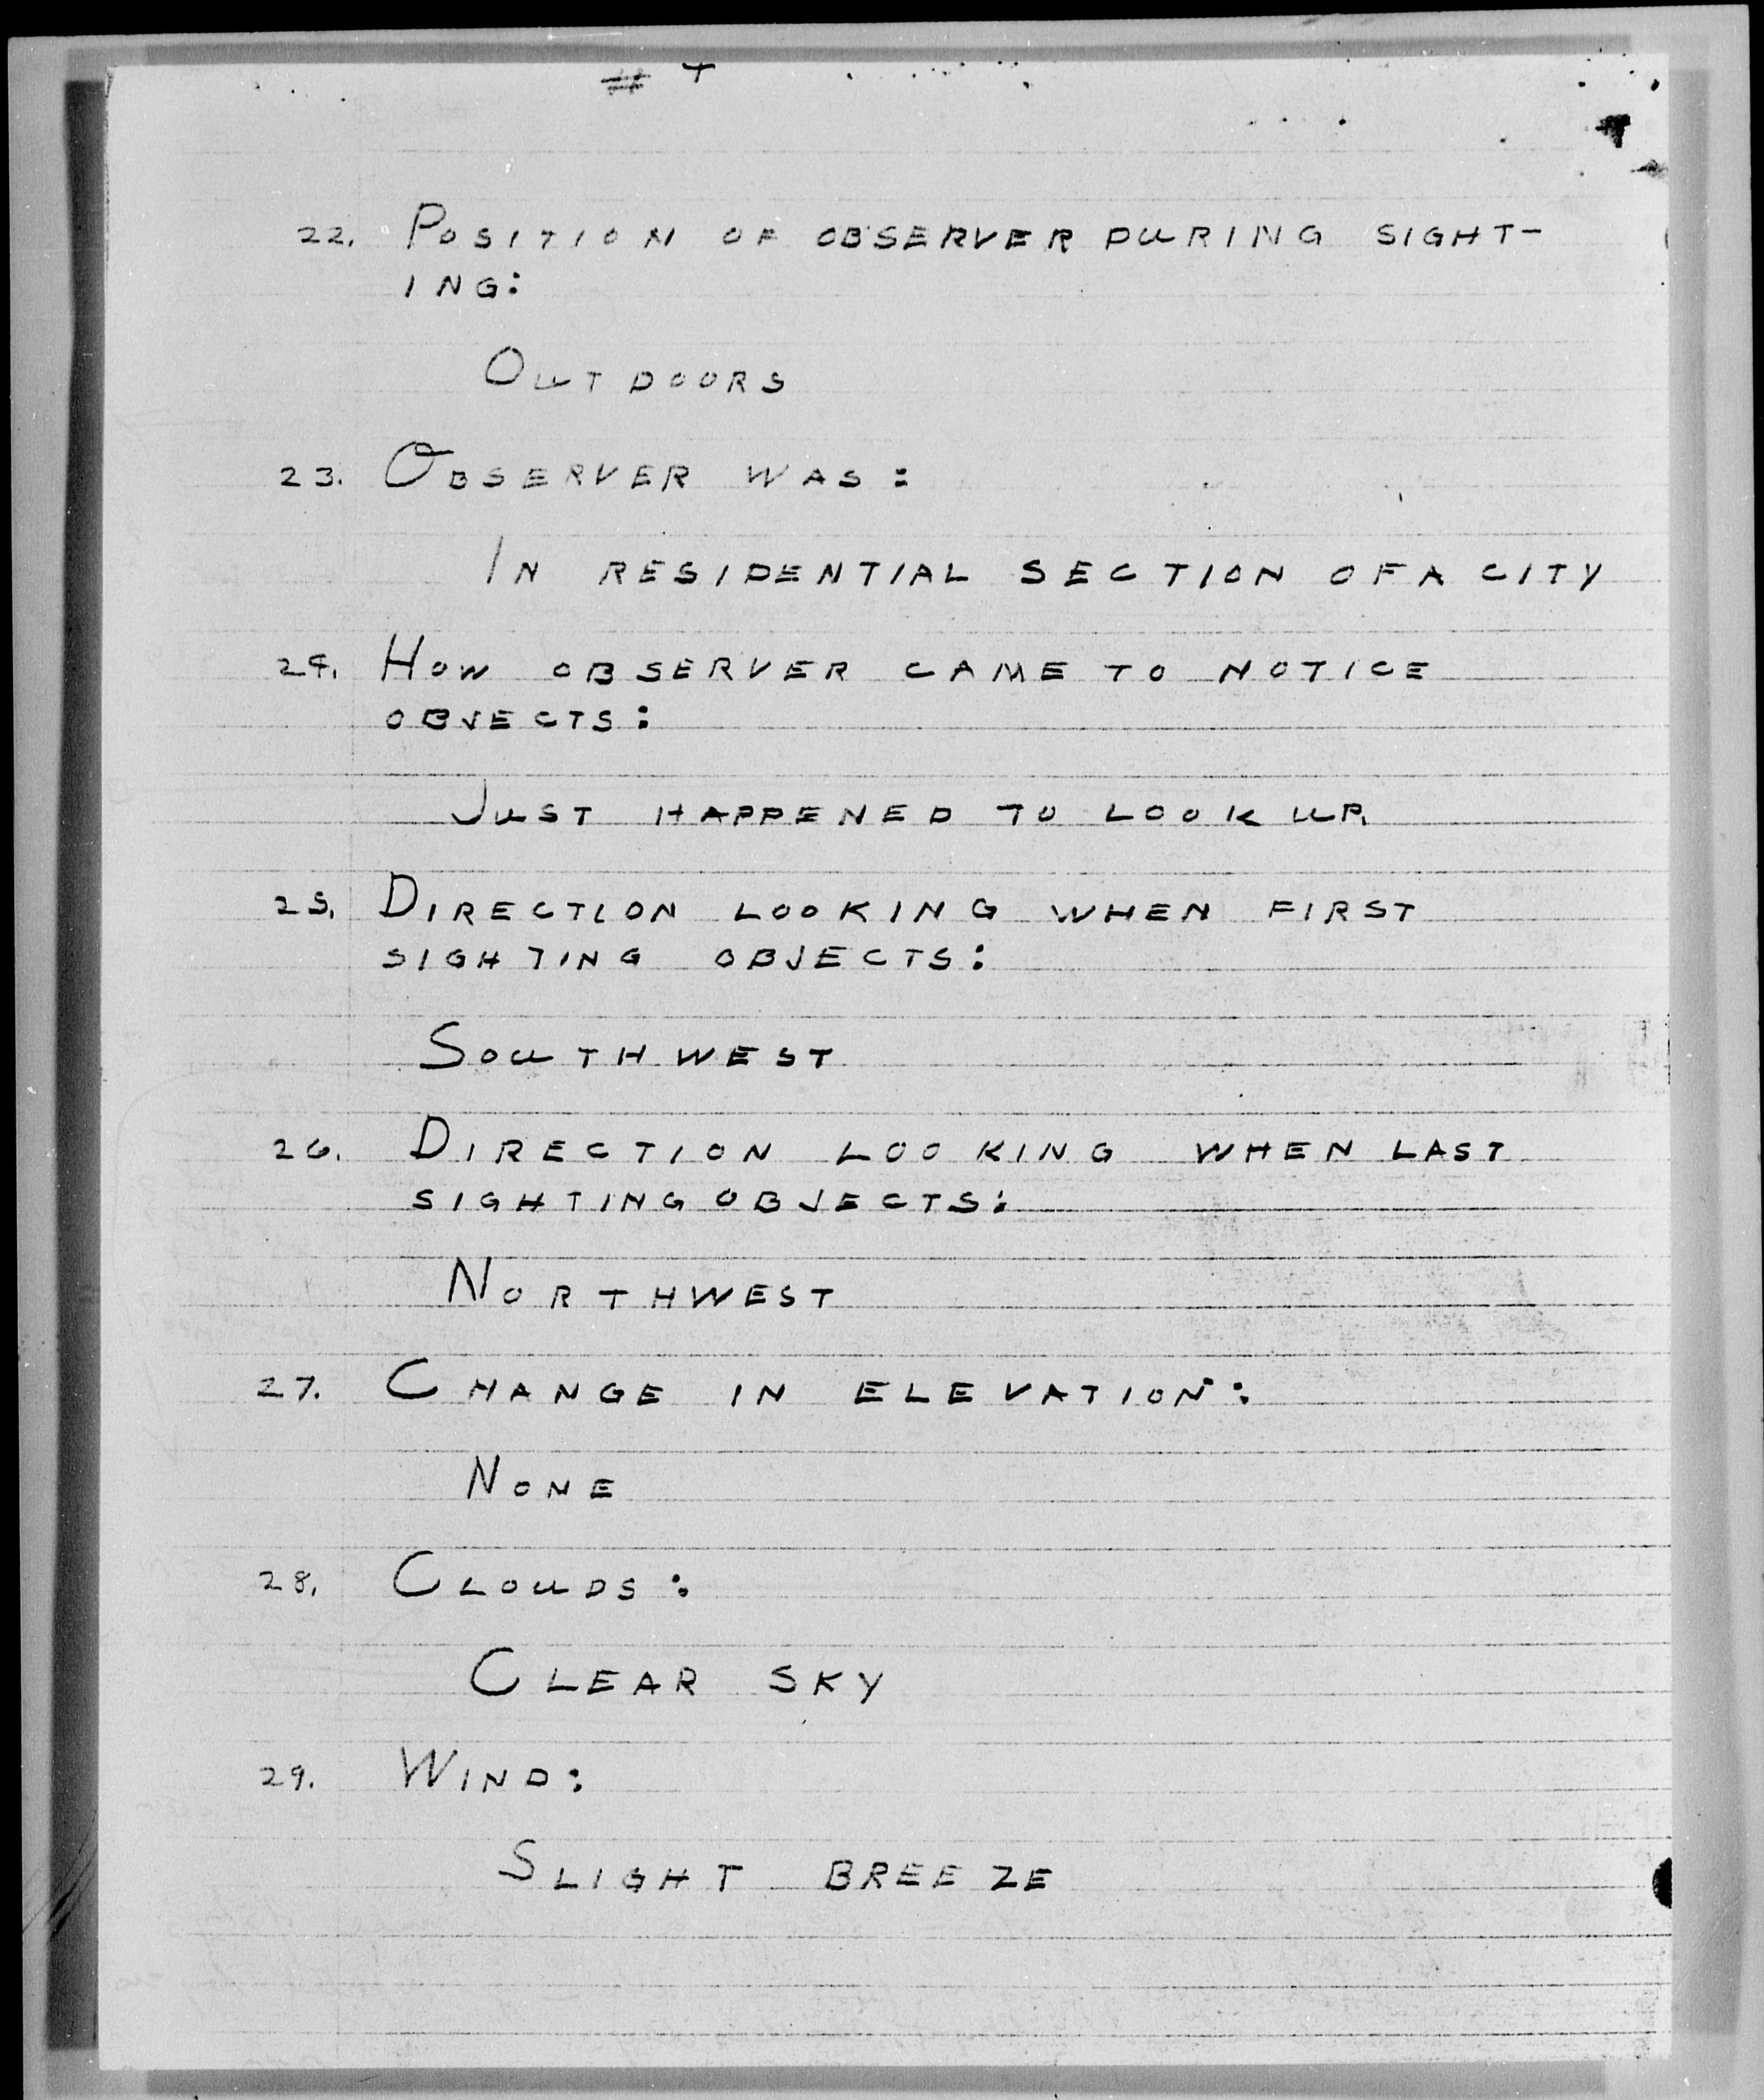 # 4
22. POSITION OF OBSERVER DURING SIGHT-
ING:
OUTDOORS
23. OBSERVER WAS:
IN RESIDENTIAL SECTION OF A CITY
24. HOW OBSERVER CAME TO NOTICE
OBJECTS:
JUST HAPPENED TO LOOK UP.
25. DIRECTION LOOKING WHEN FIRST
SIGHTING OBJECTS:
SOUTHWEST
26. DIRECTION LOOKING WHEN LAST
SIGHTING OBJECTS:
NORTHWEST
27. CHANGE IN ELEVATION:
NONE
28. CLOUDS:
CLEAR SKY
29. WIND:
SLIGHT BREEZE